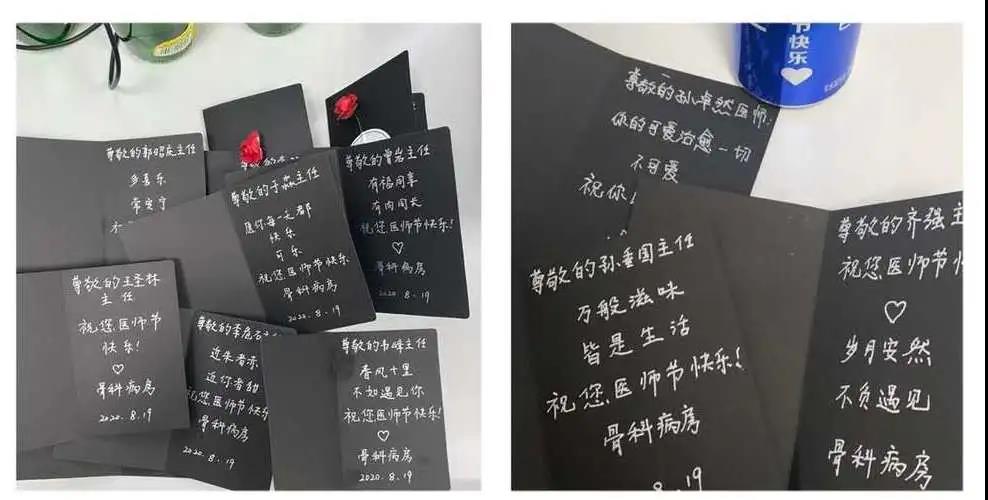 尊敬的郭昭庆主任
多喜乐
常安宁
尊敬的于淼主任
愿你每一天都
快乐
可乐
祝您医师节快乐
骨科病房
2020.8.19
尊敬的曾岩主任
有福同享
有肉同长
祝您医师节快乐!
♡
骨科病房
2020.8.19
尊敬的王圣林
主任
祝您医师节
快乐!
♡
骨科病房
2020.8.19
尊敬的李危石
近朱者赤
近你者甜
祝您医师节快乐!
骨科病房
2020.8.19
尊敬的韦峰主任
春风十里
不如遇见你
祝您医师节快乐!
♡
骨科病房
2020.8.19
节快乐
尊敬的孙卓然医师:
你的可爱治愈一切
不可爱
祝你
尊敬的孙垂国主任
万般滋味
皆是生活
祝您医师节快乐!
骨科病房
8.19
尊敬的齐强主
祝您医师节快
♡
岁月安然
不负遇见
骨科病房